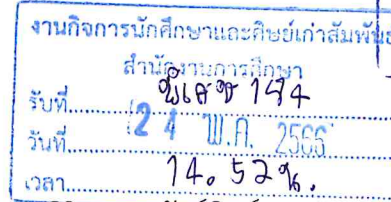 งานกิจการนักศึกษาและศิษย์เก่าสัมพันธ์
สำนักงานการศึกษา
รับที่ พิเศษ 154
วันที่ 24 พ.ค. 2566
เวลา 14.52 น.